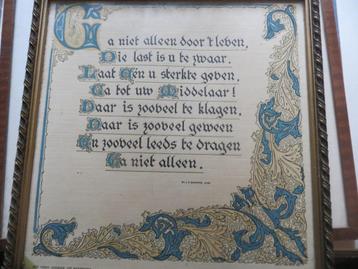 Ga niet alleen door 't leven,
Die last is u te zwaar.
Laat Eén u sterkte geven,
Ga tot uw Middelaar!
Daar is zooveel te klagen,
Daar is zooveel geween
En zooveel leeds te dragen
Ga niet alleen.